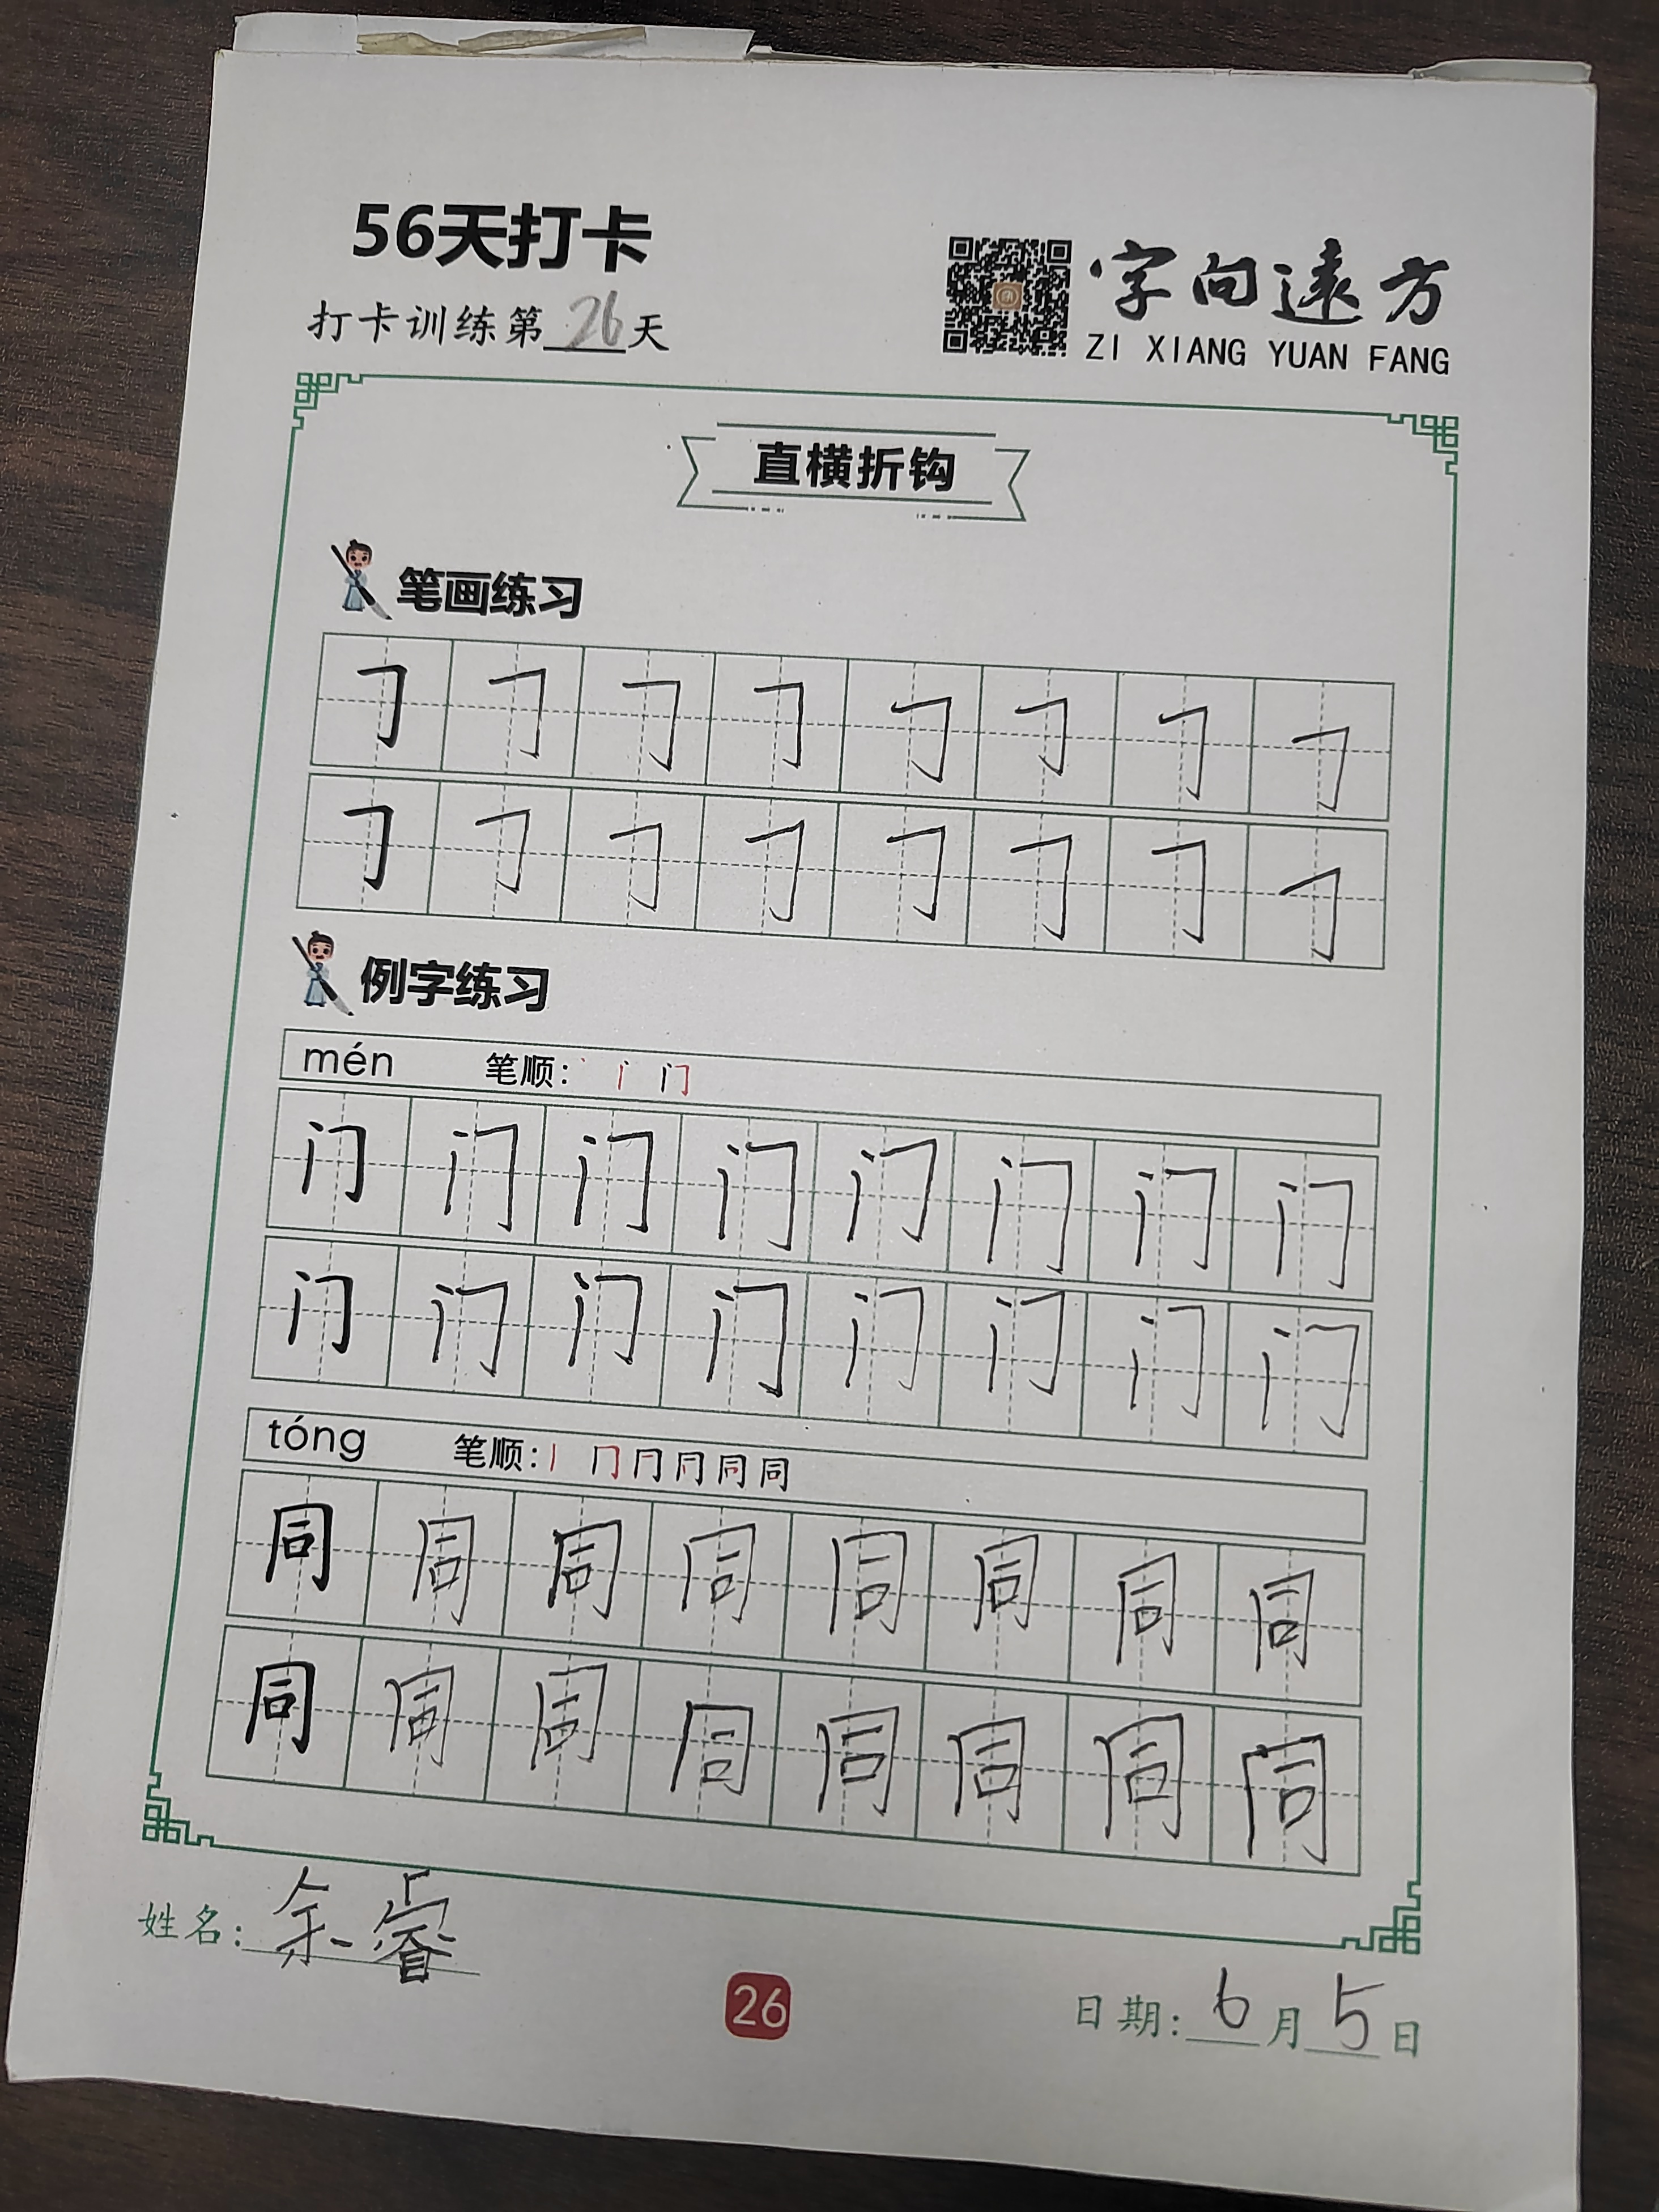 56天打卡
打卡训练第26天
字向遠方
ZI XIANG YUAN FANG
直横折钩
笔画练习
𠃌 𠃌 𠃌 𠃌 𠃌 𠃌 𠃌 𠃌
𠃌 𠃌 𠃌 𠃌 𠃌 𠃌 𠃌 𠃌
例字练习
mén 笔顺: 丶 门
门 门 门 门 门 门 门 门
门 门 门 门 门 门 门 门
tóng 笔顺: 丨 冂 同 同
同 同 同 同 同 同 同 同
同 同 同 同 同 同 同 同
姓名: 余睿
26
日期: 6月5日